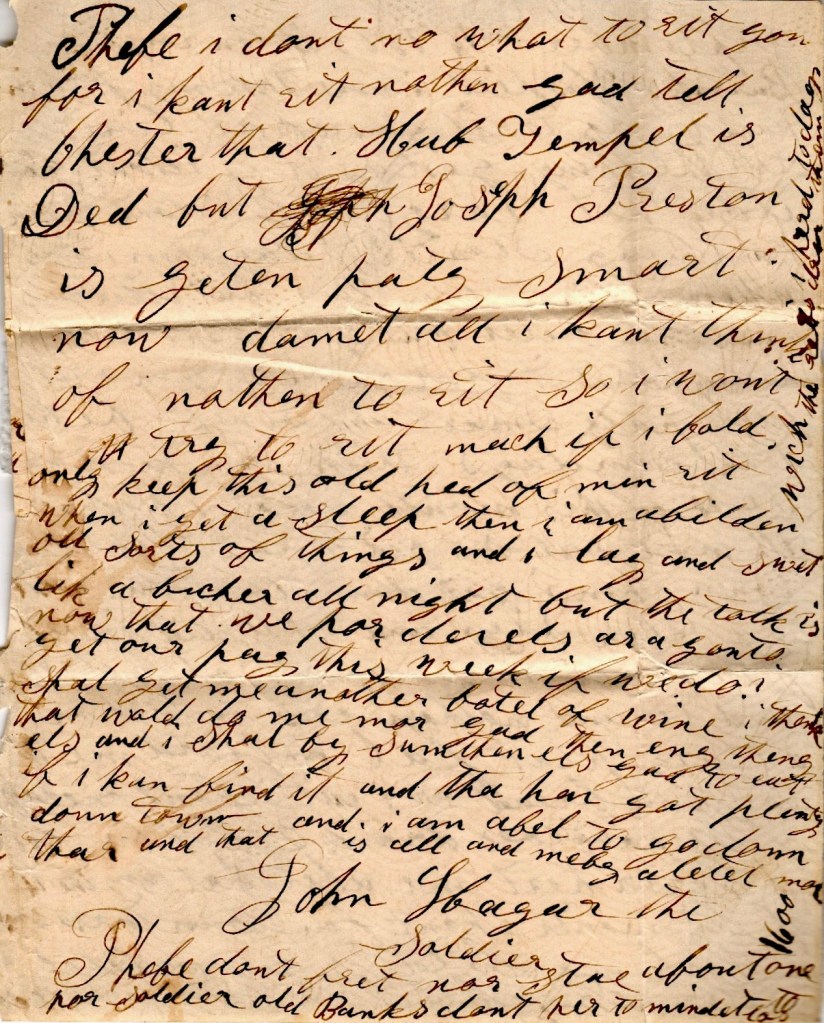 Phebe i dont no what to rit you
for i kant rit nathen gud tell
Chester that. Hub Tempel is
Ded but Joseph Preston
is geten paty smart
now damet all i kant think
of nathen to rit so i wont
try to rit much if i cold
only keep this old hed of min rit
when i get a sleep then i am abilden
all sorts of things and i lay and swet
lik a bucher all night but the talk is
now that we por devels ar a gonto
get our pay this week if we do i
shal get me another botel of wine i think
that wold do me mor gud then eny theng
els and i shal by sumthen els gud to eat
if i kan find it and tha hav gat plenty
donn town and i am abel to go donn
thar and that is all and meby a letel mor
John Hagar the
Soldier
Phebe dont fret nor stue about one
por soldier old Banks dont her to mindet
wich the rets i herd to day
1600